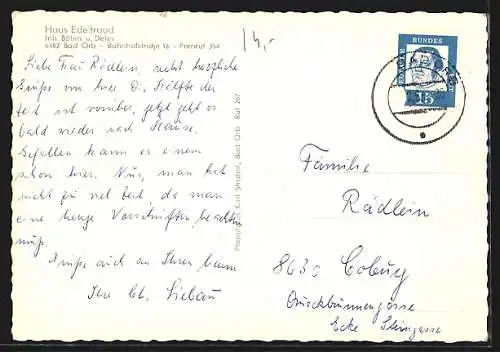 Haus Edeltraud
Inh. Böhm u. Dehn
6482 Bad Orb - Bahnhofstraße 16 - Fernruf 354
14,-
DEUTSCHE BUNDESPOST
15
Liebe Frau Rädlein, recht herzliche
Grüße von hier. Die Hälfte der
Zeit ist vorüber, jetzt geht es
bald wieder nach Hause.
Gefallen kann es einem
schon hier. Nur, man hat
nicht zu viel Zeit, da man
eine Menge Vorschriften beachten
muß.
Grüße auch an Ihren Mann
Ihre Ch. Liebau
Bad Orb Ruf 207
Familie
Rädlein
8630 Coburg
Queckbrunnengasse
Ecke Steingasse